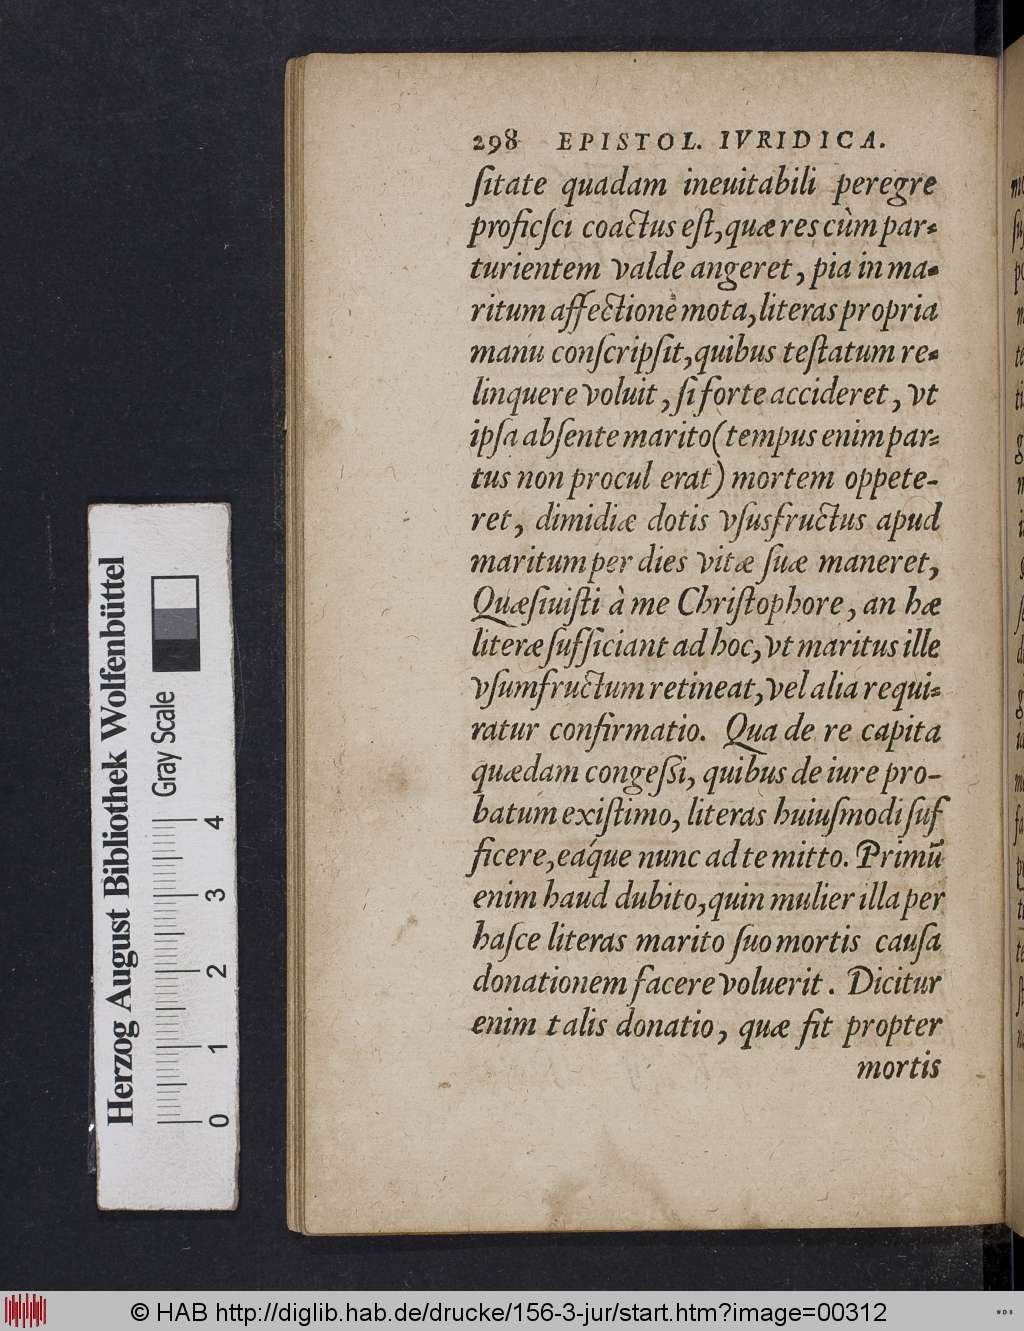 298 EPISTOL. IVRIDICA.
ſitate quadam ineuitabili peregre
proficſci coactus eſt, quæ res cùm par-
turientem valde angeret, pia in ma-
ritum affectionē mota, literas propria
manu conſcripſit, quibus teſtatum re-
linquere voluit, ſi forte accideret, vt
ipſa abſente marito (tempus enim par-
tus non procul erat) mortem oppete-
ret, dimidiæ dotis vſusfructus apud
maritum per dies vitæ ſuæ maneret,
Quæſiuiſti à me Chriſtophore, an hæ
literæ ſufficiant ad hoc, vt maritus ille
vſumfructum retineat, vel alia requi-
ratur confirmatio. Qua de re capita
quædam congeſſi, quibus de iure pro-
batum exiſtimo, literas huiuſmodi ſuf
ficere, eáque nunc ad te mitto. Primū
enim haud dubito, quin mulier illa per
haſce literas marito ſuo mortis cauſa
donationem facere voluerit. Dicitur
enim talis donatio, quæ fit propter
mortis
Herzog August Bibliothek Wolfenbüttel
Gray Scale
0 1 2 3 4
© HAB http://diglib.hab.de/drucke/156-3-jur/start.htm?image=00312